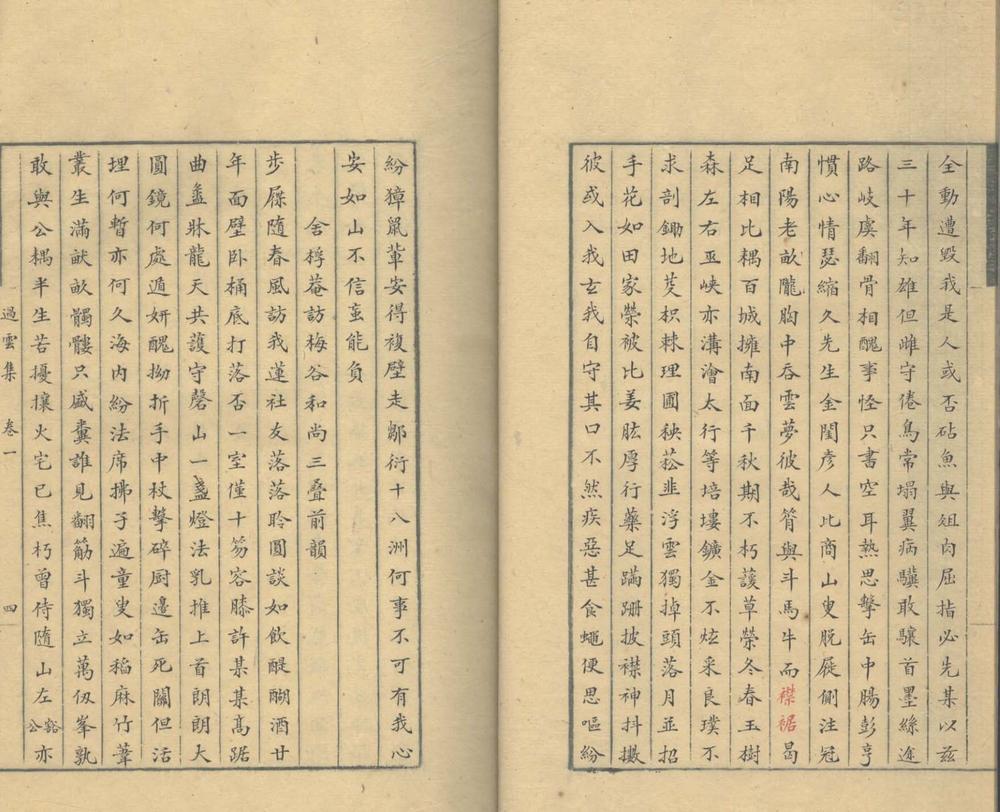 全動遭毀我是人或否砧魚與俎肉屈指必先某以茲
三十年知雄但雌守倦鳥常塌翼病驥敢驤首墨絲途
路岐虞翻骨相醜事怪只書空耳熱思擊缶中腸彭亨
慣心情瑟縮久先生金閨彥人比商山叟脫屣側注冠
南陽老畝隴胸中吞雲夢彼哉筲與斗馬牛而襟裾曷
足相比耦百城擁南面千秋期不朽護草榮冬春玉樹
森左右巫峽亦溝澮太行等培塿鑛金不炫采良璞不
求剖鋤地芟枳棘理圃秧菘韭浮雲獨掉頭落月並招
手花如田家榮被比姜肱厚行藥足蹒跚披襟神抖擻
彼或入我玄我自守其口不然疾惡甚食蠅便思嘔紛
紛獐鼠輩安得複壁走鄒衍十八洲何事不可有我心
安如山不信蚉能負
舍樗菴訪梅谷和尚三叠前韻
步屧隨春風訪我蓮社友落落聆圓談如飲醍醐酒廿
年面壁卧桶底打落否一室僅十笏容膝許某某高踞
曲盝牀龍天共護守磬山一盞燈法乳推上首朗朗大
圓鏡何處遁妍醜拗折手中杖擊碎厨邊缶死關但活
埋何暫亦何久海內紛法席拂子遍童叟如稻麻竹葦
叢生滿畎畝髑髏只盛糞誰見翻筋斗獨立萬仭峯孰
敢與公耦半生苦擾攘火宅已焦朽曾侍隨山左谿公亦
過雲集 卷一 四